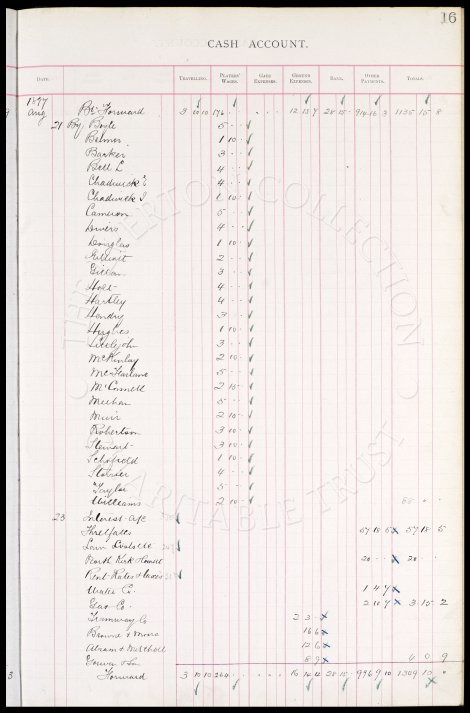 16
CASH ACCOUNT.
DATE. TRAVELLING. PLAYERS' WAGES. GATE EXPENSES. GROUND EXPENSES. BANK. OTHER PAYMENTS. TOTALS.
1897
Aug Bt Forward 3 10 10 176 - - 12 13 7 28 15 - 914 16 3 1135 15 8
21 By Boyle 5 - -
Balmer 1 10 -
Barker 3 - -
Bell L 4 - -
Chadwick E 4 - -
Chadwick J 1 10 -
Cameron 5 - -
Divers 4 - -
Douglas 1 10 -
Elliott 2 - -
Gillan 3 - -
Holt 4 - -
Hartley 4 - -
Hendry 3 - -
Hughes 1 10 -
3 - -
McKinlay 2 10 -
McFarlane 5 - -
McConnell 2 15 -
Meehan 5 - -
Muir 2 10 -
Robertson 3 10 -
Stewart 3 10 -
Schofield 1 10 -
Storrier 4 - -
Taylor 5 - -
Williams 2 10 - 88 - -
23 Interest a/c
Threlfalls 57 18 5 57 18 5
Loan
North Kirk 20 - - 20 - -
Rent Rates & taxes
Water Co. 1 4 7
Gas Co. 2 10 7 3 15 2
Tramway Co 2 3 -
Browne & 16 6
Abram & Mitchell 12 6
& Son 8 9 4 0 9
3 Forward 3 10 10 264 - - 16 14 4 28 15 - 996 9 10 1309 10 -
THE EVERTON COLLECTION
CHARITABLE TRUST